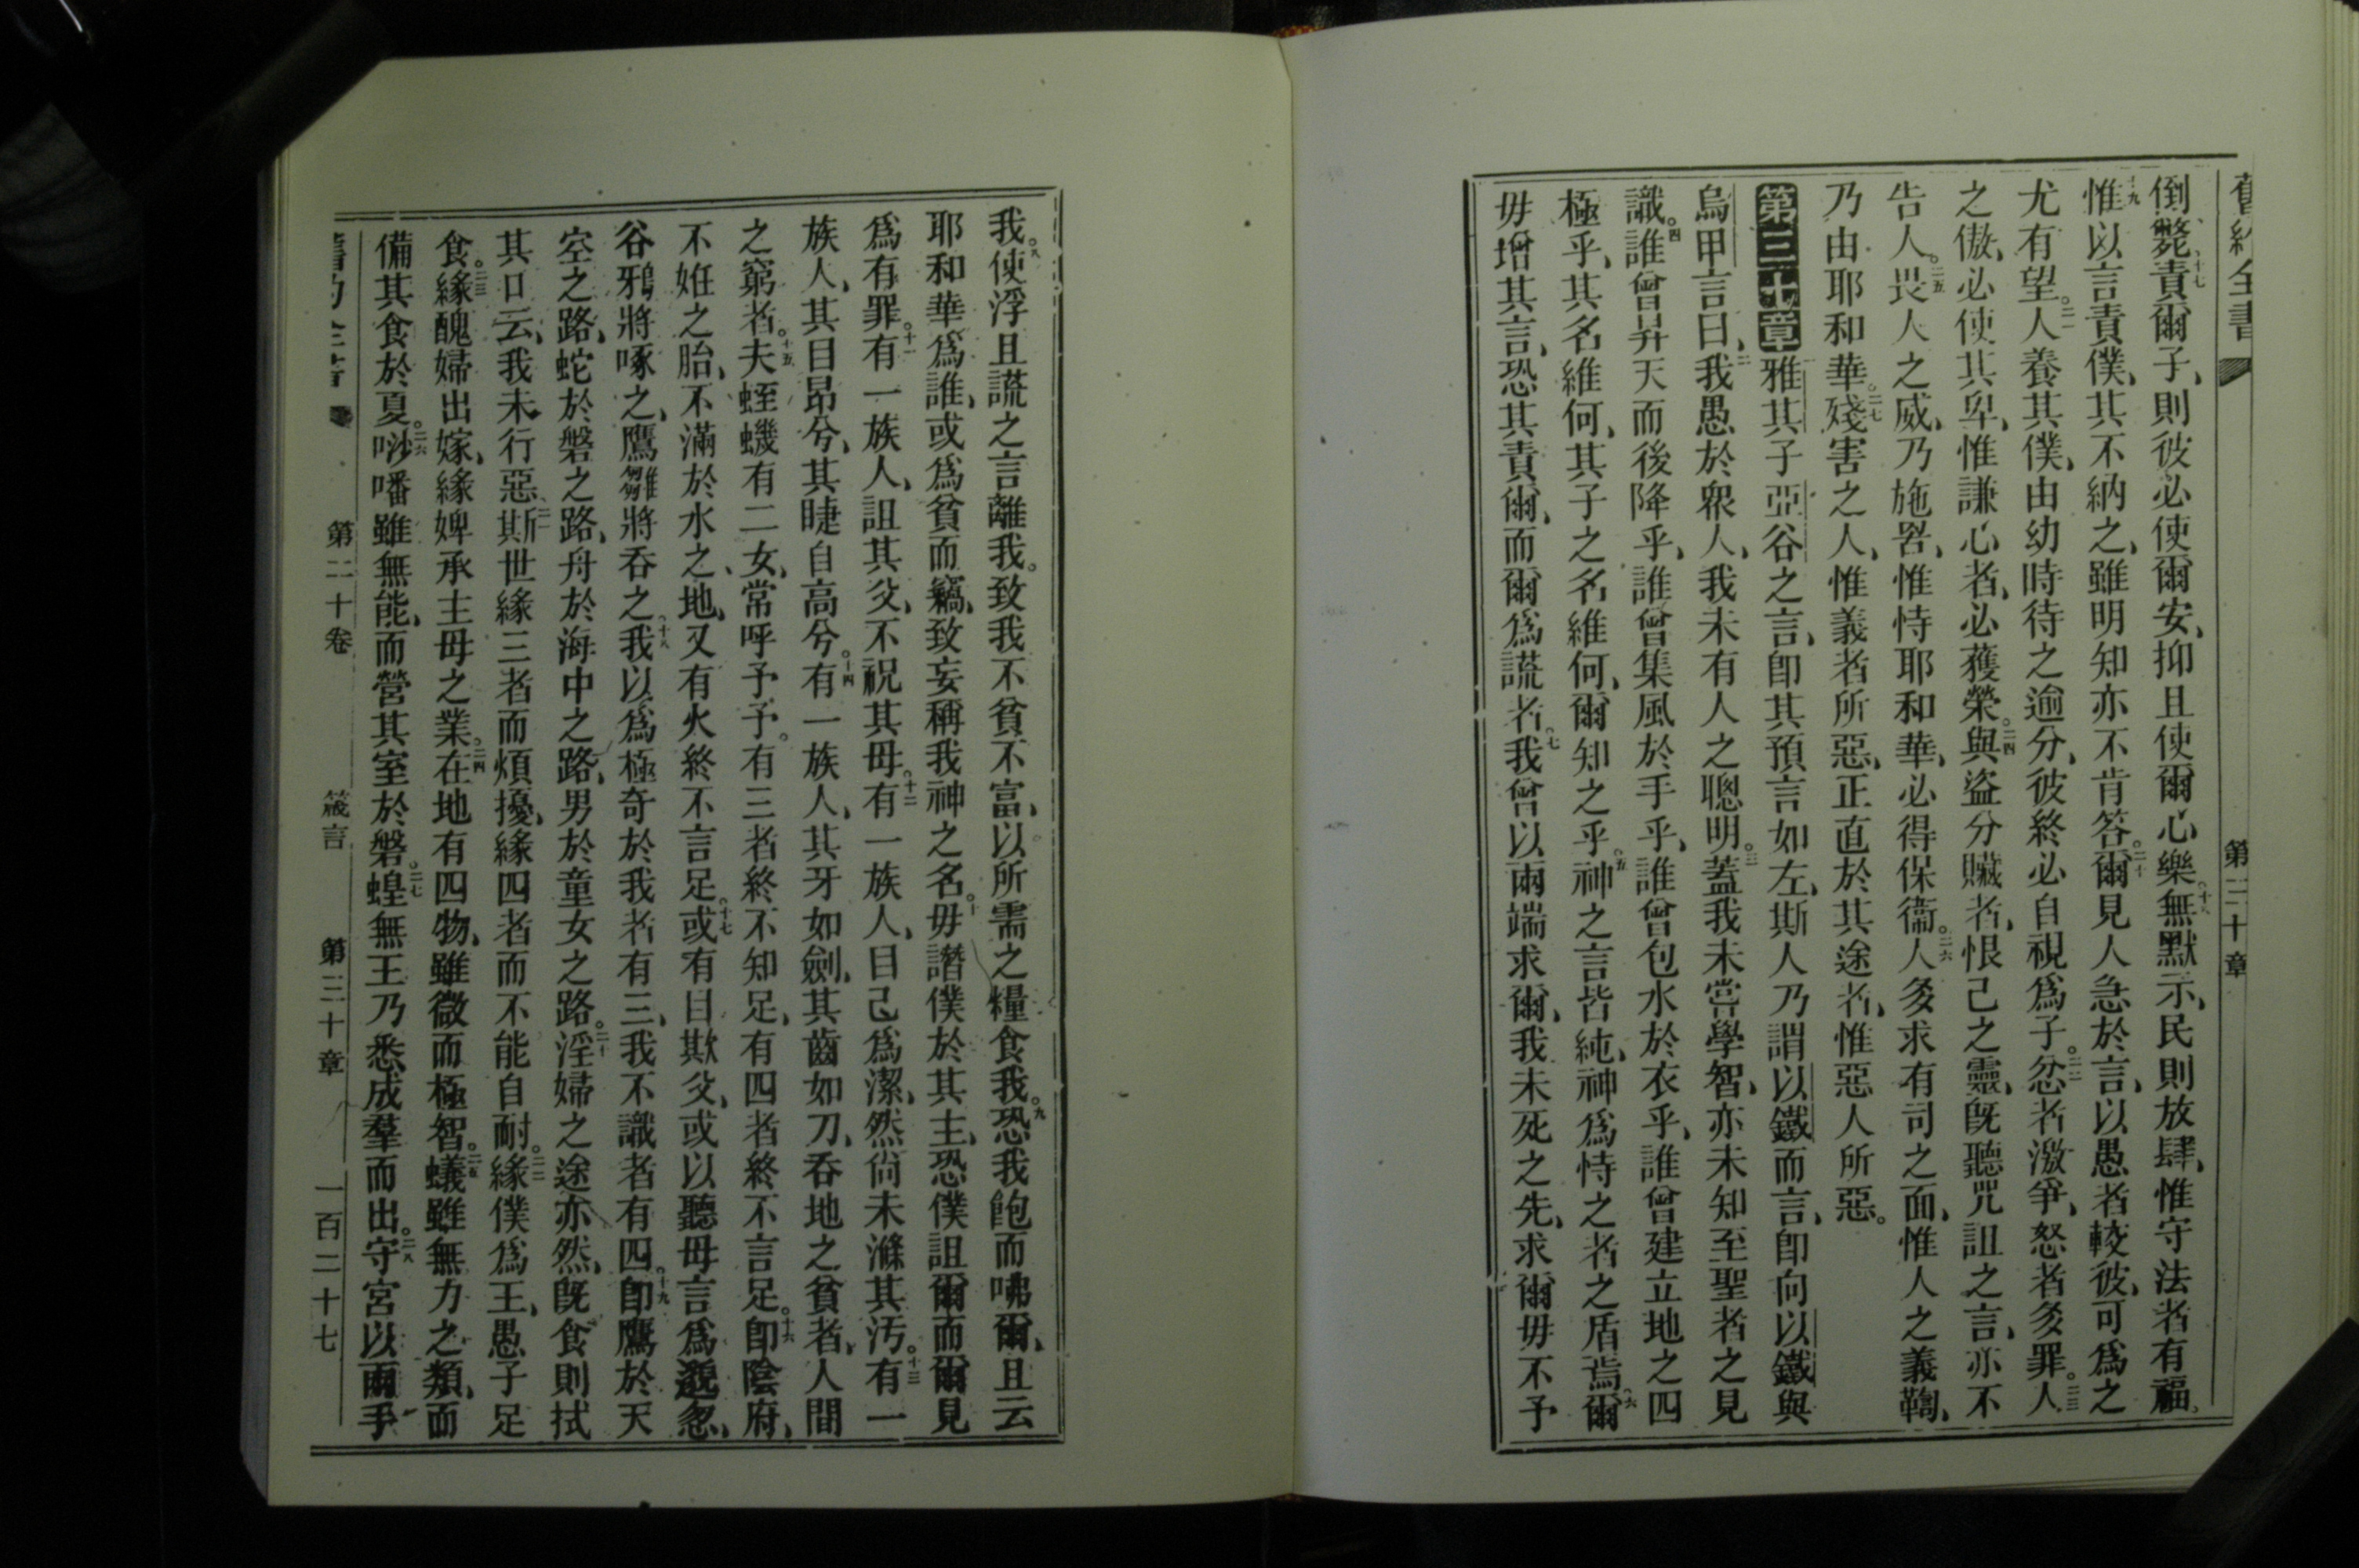 舊約全書
第三十章
倒斃、十七責爾子、則彼必使爾安、抑且使爾心樂。十八無默示、民則放肆、惟守法者有福。
十九惟以言責僕、其不納之、雖明知亦不肯答。二十爾見人急於言、以愚者較彼、可爲之
尤有望。二一人養其僕、由幼時待之逾分、彼終必自視爲子。二二忿者激爭、怒者多罪。二三人
之傲、必使其卑、惟謙心者、必獲榮。二四與盜分贓者、恨己之靈、既聽咒詛之言、亦不
告人。二五畏人之威、乃施罟、惟恃耶和華、必得保衞。二六人多求有司之面、惟人之義鞫、
乃由耶和華。二七殘害之人、惟義者所惡、正直於其途者、惟惡人所惡。
第三十章 一雅其子亞谷之言、卽其預言如左、斯人乃謂以鐵而言、卽向以鐵與
烏甲言曰、二我愚於衆人、我未有人之聰明。三蓋我未嘗學智、亦未知至聖者之見
識。四誰曾昇天而後降乎、誰曾集風於手乎、誰曾包水於衣乎、誰曾建立地之四
極乎、其名維何、其子之名維何、爾知之乎。五神之言皆純、神爲恃之者之盾焉。六爾
毋增其言、恐其責爾、而爾爲謊者。七我曾以兩端求爾、我未死之先、求爾毋不予
我。八使浮且謊之言離我。致我不貧不富、以所需之糧食我。九恐我飽而咈爾、且云
耶和華爲誰、或爲貧而竊、致妄稱我神之名。十毋譖僕於其主、恐僕詛爾而爾見
爲有罪。十一有一族人、詛其父、不祝其母。十二有一族人、目己爲潔、然尙未滌其汚。十三有一
族人、其目昂兮、其睫自高兮。十四有一族人、其牙如劍、其齒如刀、吞地之貧者、人間
之窮者。十五夫蛭蟣有二女、常呼予予。有三者終不知足、有四者終不言足。十六卽陰府、
不姙之胎、不滿於水之地、又有火終不言足。十七或有目欺父、或以聽母言爲藐忽、
谷鴉將啄之、鷹雛將吞之。十八我以爲極奇於我者有三、我不識者有四。十九卽鷹於天
空之路、蛇於磐之路、舟於海中之路、男於童女之路。二十淫婦之途亦然、既食則拭
其口云、我未行惡。二一斯世緣三者而煩擾、緣四者而不能自耐。二二緣僕爲王、愚子足
食。二三緣醜婦出嫁、緣婢承主母之業。二四在地有四物、雖微而極智。二五蟻雖無力之類、而
備其食於夏。二六𠴕噃雖無能、而營其室於磐。二七蝗無王乃悉成羣而出。二八守宮以兩手
舊約全書
第二十卷
箴言
第三十章
一百二十七